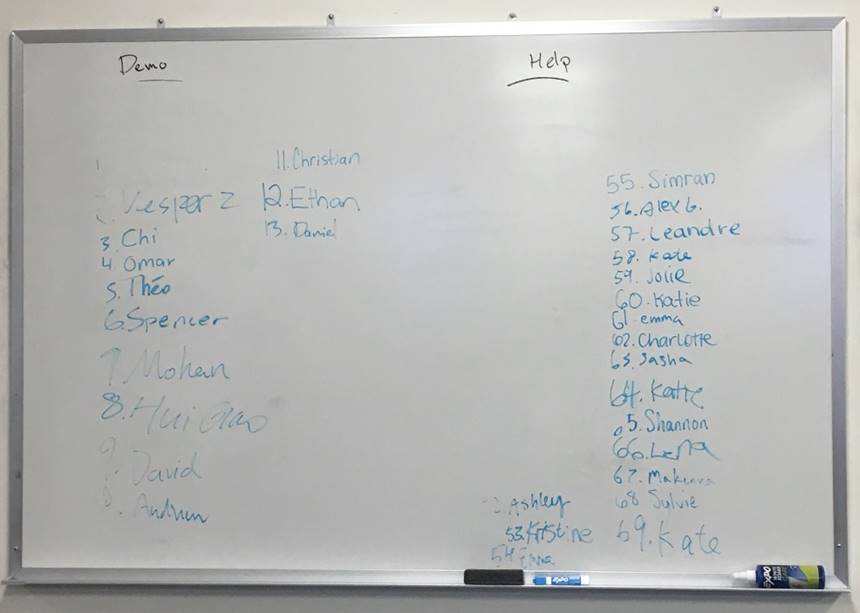 Demo
1
Vesper Z
3. Chi
4 Omar
5. Théo
6. Spencer
7 Mohan
8. Hui Gao
9. David
11. Christian
12. Ethan
13. Daniel
Help
Ashley
53. Kristine
54 Emma
55. Simran
56. Alex G.
57. Leandre
58. Kate
59. Jolie
60. Katie
61. emma
62. Charlotte
63. Sasha
64. Katie
5. Shannon
66. Lena
67. Makenna
68 Sylvie
69. Kate
EXPO
EXPO